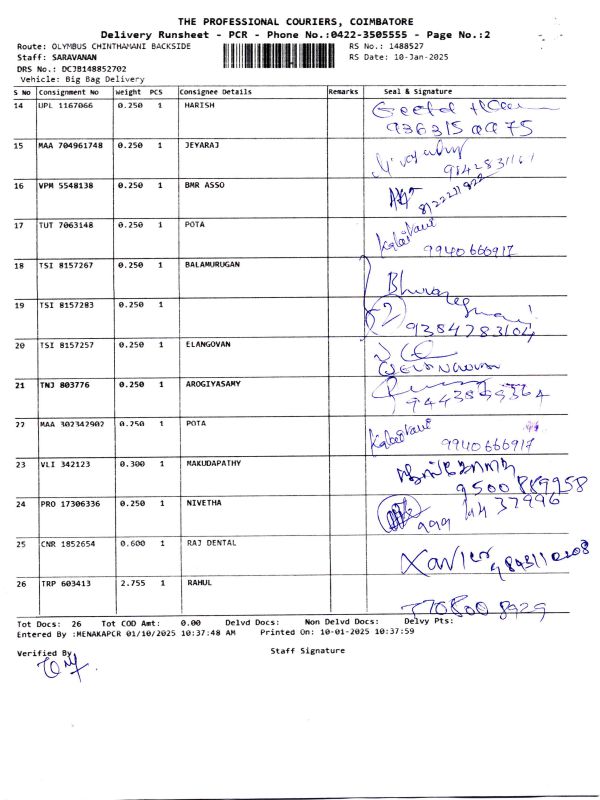 THE PROFESSIONAL COURIERS, COIMBATORE
Delivery Runsheet - PCR - Phone No.:0422-3505555 - Page No.:2
Route: OLYMBUS CHINTHAMANI BACKSIDE RS No.: 1488527
Staff: SARAVANAN RS Date: 10-Jan-2025
DRS No.: DCJB148852702
Vehicle: Big Bag Delivery
S No Consignment No Weight PCS Consignee Details Remarks Seal & Signature
14 UPL 1167066 0.250 1 HARISH Geetha
15 MAA 704961748 0.250 1 JEYARAJ
16 VPM 5548138 0.250 1 BMR ASSO
17 TUT 7063148 0.250 1 POTA Kalaivani
9940666917
18 TSI 8157267 0.250 1 BALAMURUGAN
19 TSI 8157283 0.250 1 2
9384783104
20 TSI 8157257 0.250 1 ELANGOVAN
21 TNJ 803776 0.250 1 AROGIYASAMY
22 MAA 302342902 0.250 1 POTA Kalaivani
9940666917
23 VLI 342123 0.300 1 MAKUDAPATHY
24 PRO 17306336 0.250 1 NIVETHA
25 CNR 1852654 0.600 1 RAJ DENTAL Xavier
26 TRP 603413 2.755 1 RAHUL
Tot Docs: 26 Tot COD Amt: 0.00 Delvd Docs: Non Delvd Docs: Delvy Pts:
Entered By :MENAKAPCR 01/10/2025 10:37:48 AM Printed On: 10-01-2025 10:37:59
Verified By Staff Signature